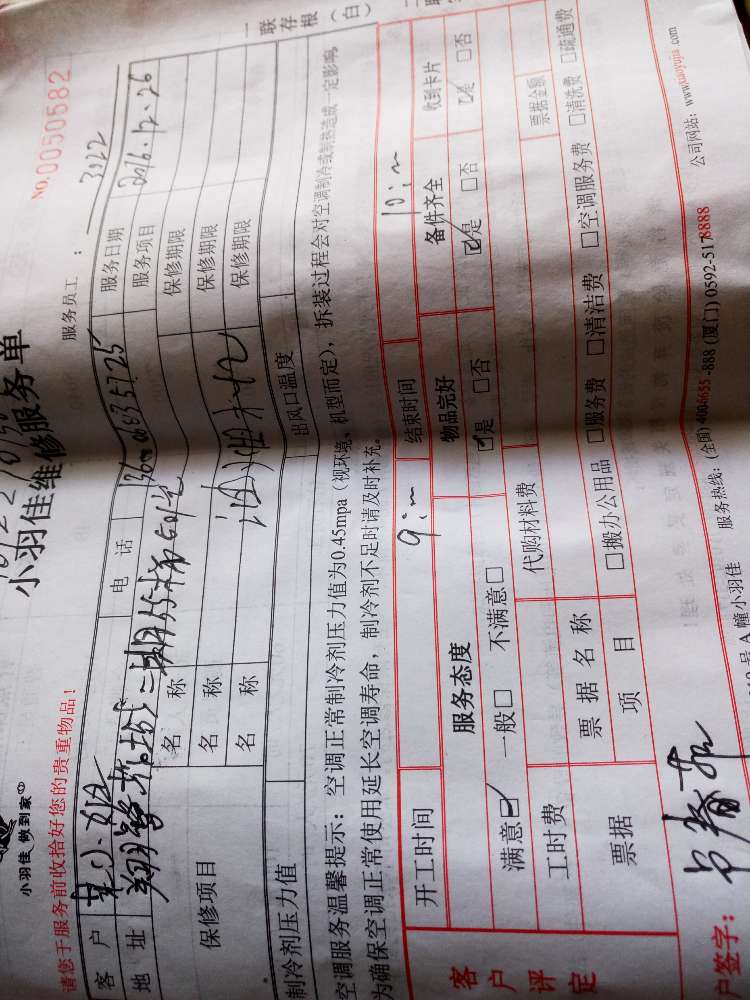 小羽佳维修服务单
NO.0050682
小羽佳 做到家
请您于服务前收拾好您的贵重物品！
服务员工：3022
客户
电话
服务日期 2016.12.26
地址
服务项目
保修项目
名称
保修期限
名称
保修期限
名称
保修期限
制冷剂压力值
出风口温度
空调服务温馨提示：空调正常制冷剂压力值为0.45mpa（视环境、机型而定），拆装过程会对空调制冷或制热造成一定影响
为确保空调正常使用延长空调寿命，制冷剂不足时请及时补充。
一联存根（白）
客户评定
开工时间 9:
结束时间 10:
服务态度
物品完好
备件齐全
收到卡片
满意☑ 一般□ 不满意□
☑是 □否
☑是 □否
☑是 □否
工时费
代购材料费
票据金额
票据
票据名称
项目
□搬办公用品 □服务费 □清洁费 □空调服务费 □清洗费 □疏通费
户签字：
号A幢小羽佳 服务热线：(全国)4006655-888 (厦门)0592-5178888 公司网站：www.xiaoyujia.com